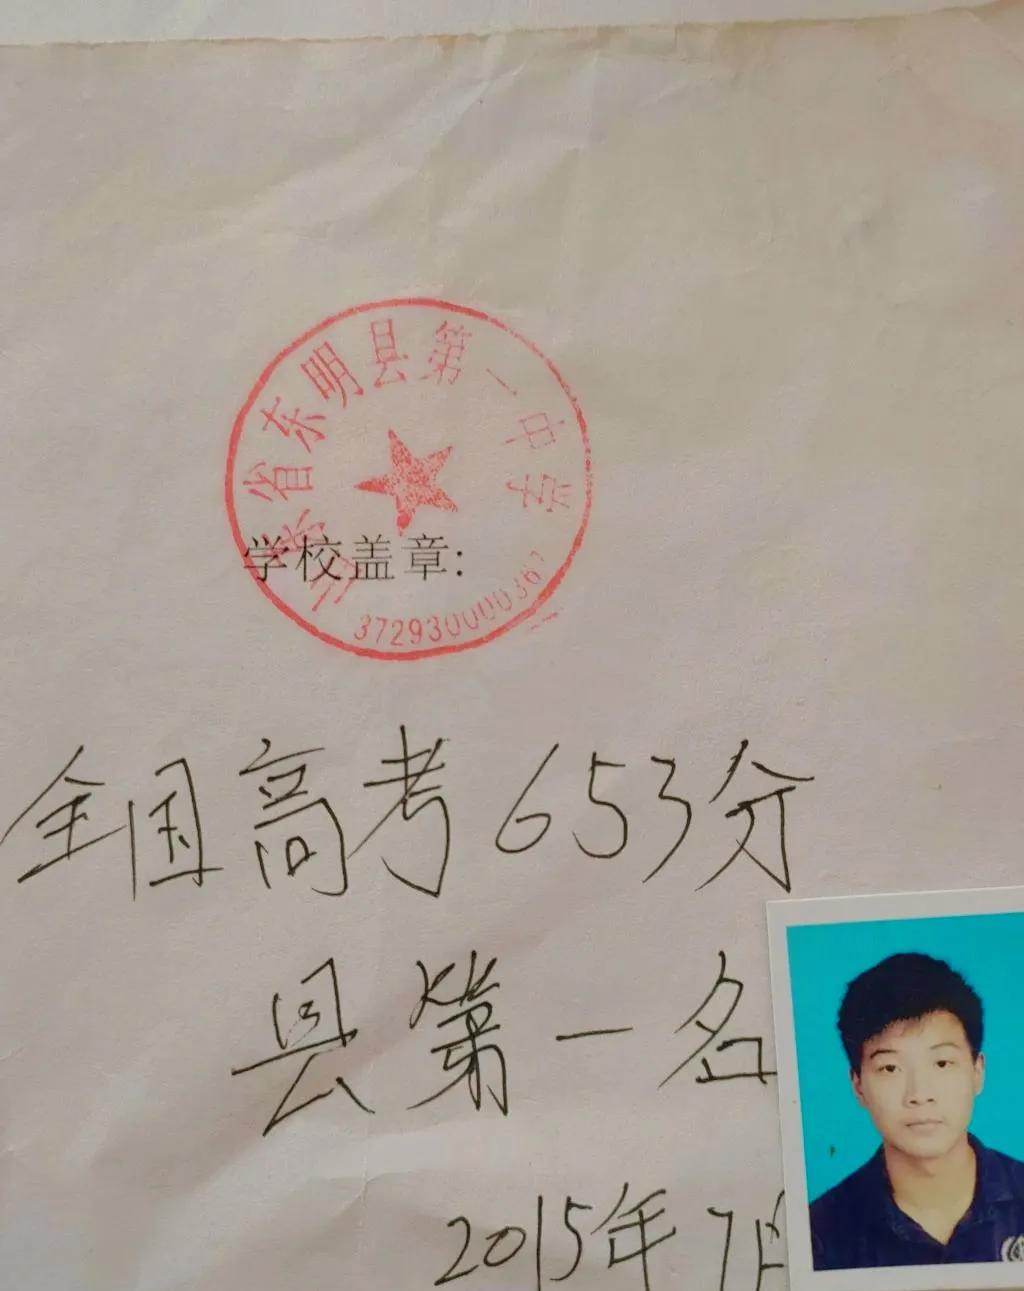 山东省东明县第一中学
学校盖章:
372930000367
全国高考653分
县第一名
2015年7月